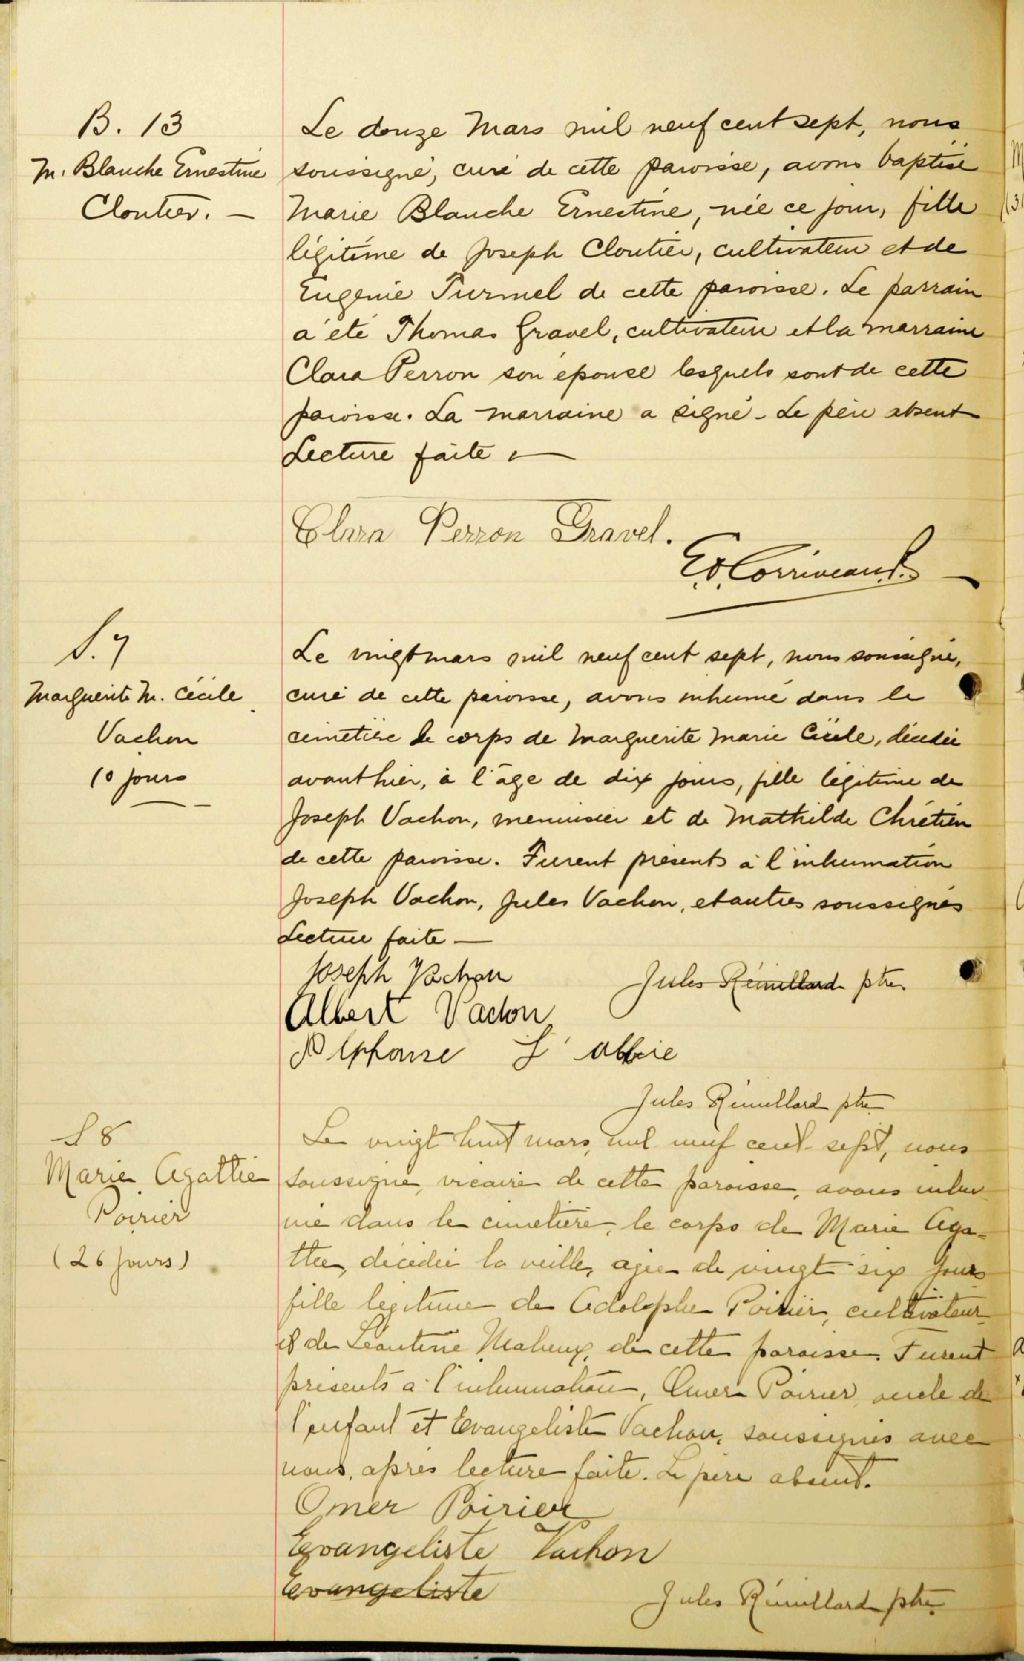 B. 13
M. Blanche Ernestine
Cloutier. —
Le douze Mars mil neuf cent sept, nous
soussigné, curé de cette paroisse, avons baptisé
Marie Blanche Ernestine, née ce jour, fille
légitime de Joseph Cloutier, cultivateur et de
Eugenie Turmel de cette paroisse. Le parrain
a été Thomas Gravel, cultivateur et la marraine
Clara Perron son épouse lesquels sont de cette
paroisse. La marraine a signé - Le père absent
Lecture faite. —
Clara Perron Gravel.
Ed. Corriveau P. —
S. 7
Marguerite M. Cécile
Vachon
10 jours
Le vingt mars mil neuf cent sept, nous soussigné,
curé de cette paroisse, avons inhumé dans le
cimetière le corps de Marguerite Marie Cécile, décédée
avant hier, à l'âge de dix jours, fille légitime de
Joseph Vachon, menuisier et de Mathilde Chrétien
de cette paroisse. Furent présents à l'inhumation
Joseph Vachon, Jules Vachon, et autres soussignés
Lecture faite —
Joseph Vachon
Jules Rémillard ptre.
Albert Vachon
Alphonse L'abbée
Jules Rémillard ptre
S 8
Marie Agatthe
Poirier
(26 jours)
Le vingt huit mars, mil neuf cent sept, nous
soussigné, vicaire de cette paroisse, avons inhu-
mé dans le cimetière, le corps de Marie Aga-
tthe, décédée la veille, agée de vingt six jours
fille légitime de Adolphe Poirier, cultivateur
& de Léontine Maheux, de cette paroisse. Furent
présents à l'inhumation, Omer Poirier, oncle de
l'enfant et Evangeliste Vachon, soussignés avec
nous, après lecture faite. Le père absent.
Omer Poirier
Evangeliste Vachon
Evangeliste
Jules Rémillard ptre.